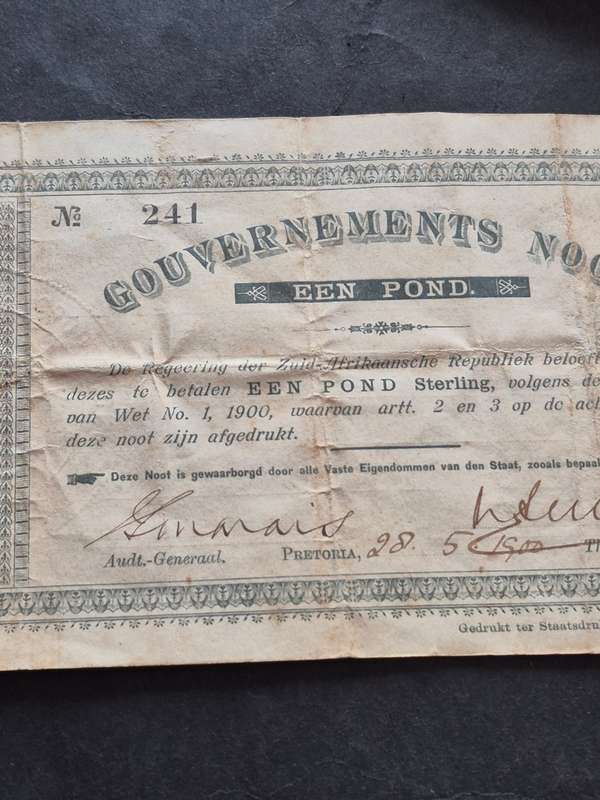 No 241
GOUVERNEMENTS NOO
EEN POND.
De Regeering der Zuid-Afrikaansche Republiek beloeft
dezes te betalen EEN POND Sterling, volgens de
van Wet No. 1, 1900, waarvan artt. 2 en 3 op de act
deze noot zijn afgedrukt.
Deze Noot is gewaarborgd door alle Vaste Eigendommen van den Staat, zooals bepaal
Audt.-Generaal. PRETORIA, 28. 5 1900 Th
Gedrukt ter Staatsdru